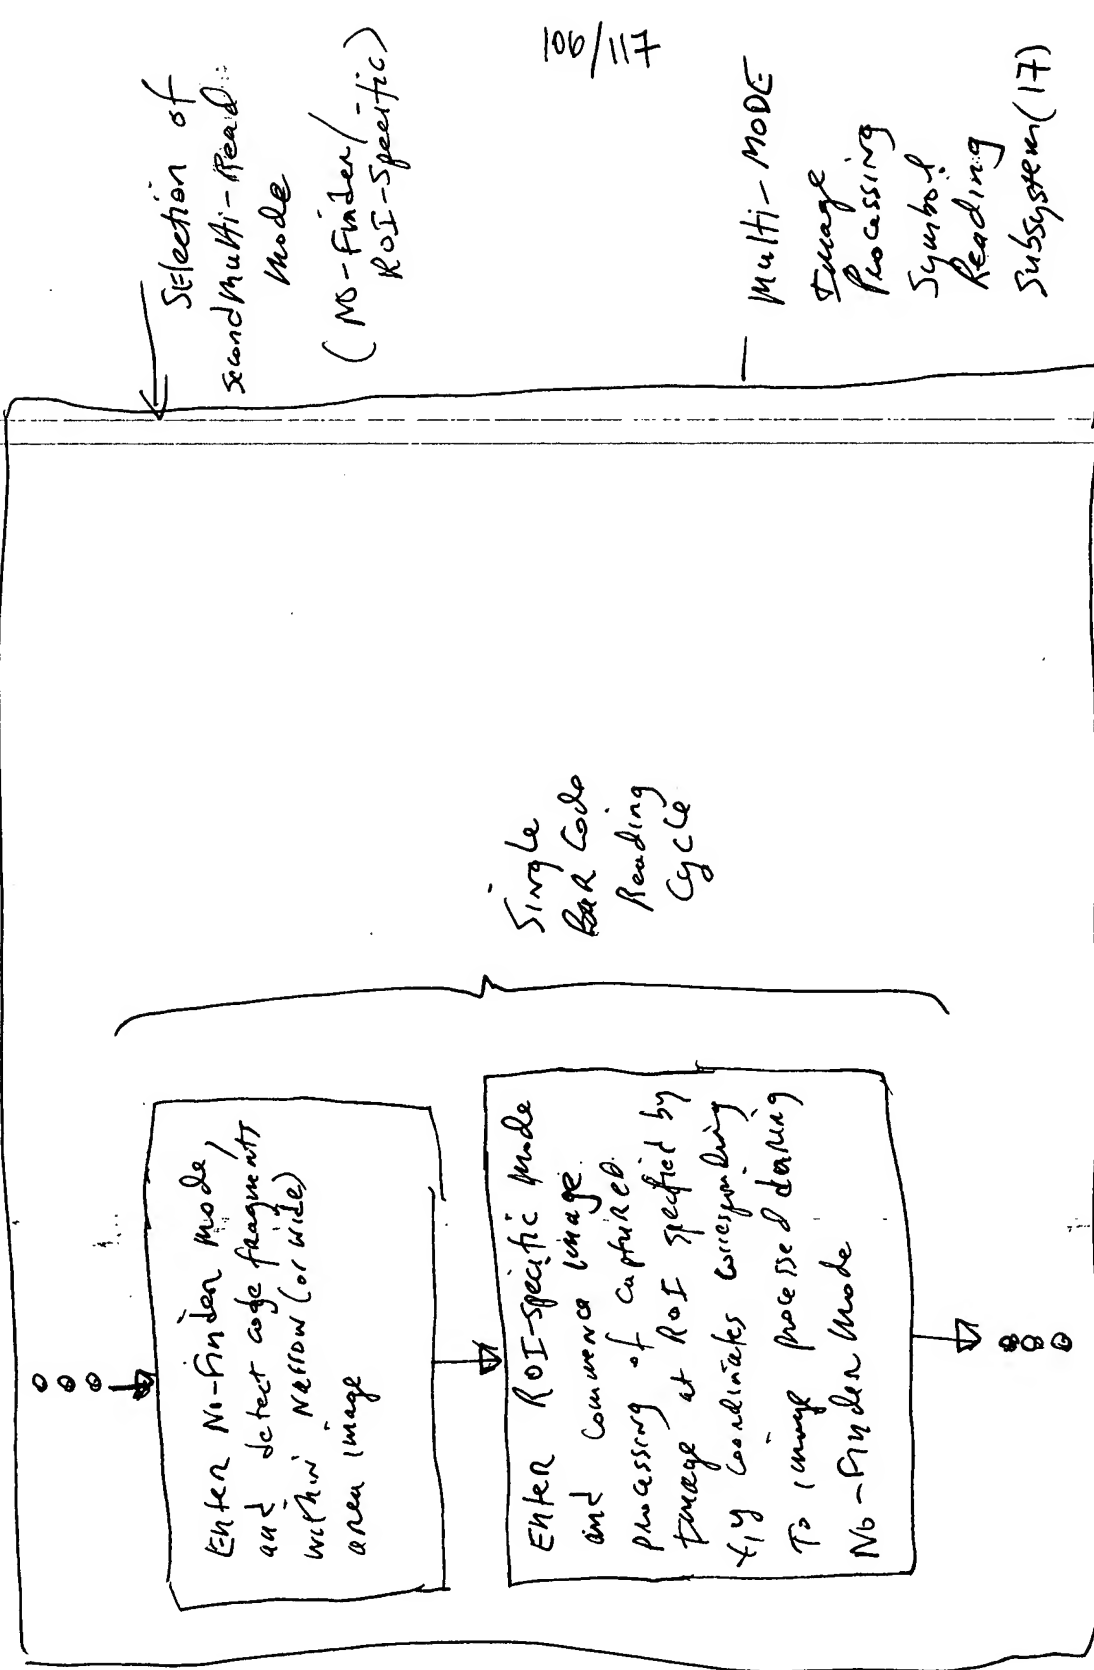 106/117
Selection of
second Multi-Read
mode
(No-Finder/
ROI-Specific)
Multi-MODE
Image
Processing
Symbol
Reading
Subsystem (17)
Enter No-Finder Mode,
and detect code fragments
within narrow (or wide)
area image
Single
Bar Code
Reading
Cycle
Enter ROI-specific Mode
and commence image
processing of captured
Image at ROI specified by
x,y coordinates corresponding
To image processed during
No-Finder Mode